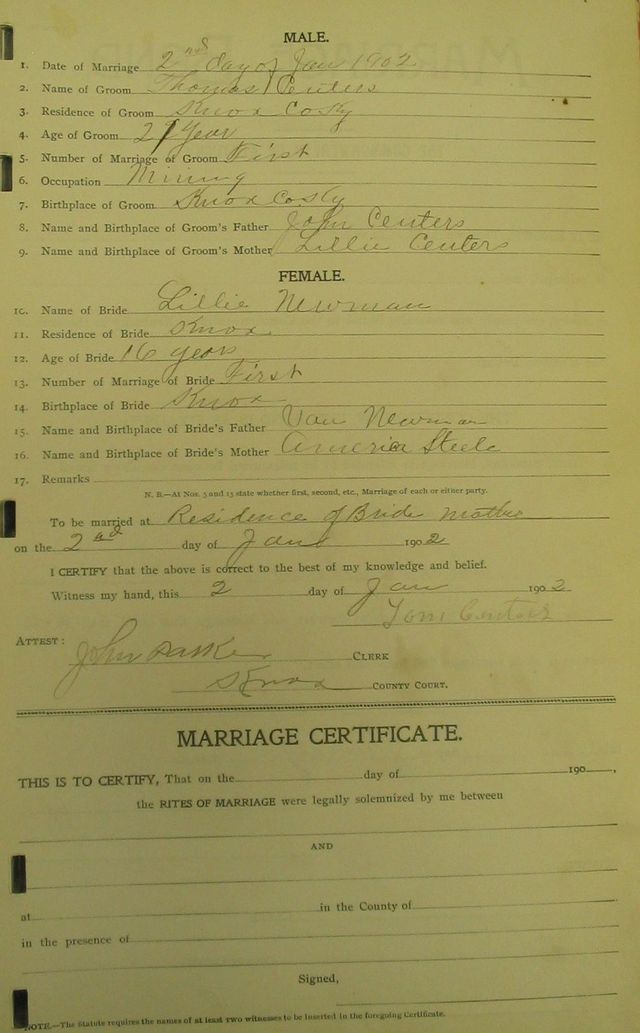 MALE.
1. Date of Marriage 2nd day of Jan 1902
2. Name of Groom Thomas Centers
3. Residence of Groom Knox Co Ky
4. Age of Groom 21 Year
5. Number of Marriage of Groom First
6. Occupation Mining
7. Birthplace of Groom Knox Co. Ky
8. Name and Birthplace of Groom's Father John Centers
9. Name and Birthplace of Groom's Mother Lillie Centers
FEMALE.
10. Name of Bride Lillie Newman
11. Residence of Bride Knox
12. Age of Bride 16 years
13. Number of Marriage of Bride First
14. Birthplace of Bride Knox
15. Name and Birthplace of Bride's Father Van Newman
16. Name and Birthplace of Bride's Mother America Steele
17. Remarks
N. B.—At Nos. 5 and 13 state whether first, second, etc., Marriage of each or either party.
To be married at Residence of Bride Mother
on the 2nd day of Jan 1902
I CERTIFY that the above is correct to the best of my knowledge and belief.
Witness my hand, this 2 day of Jan 1902
Tom Centers
ATTEST: John Parker CLERK
Knox COUNTY COURT.
MARRIAGE CERTIFICATE.
THIS IS TO CERTIFY, That on the day of 190 ,
the RITES OF MARRIAGE were legally solemnized by me between
AND
at in the County of
in the presence of
Signed,
NOTE.—The Statute requires the names of at least two witnesses to be inserted in the foregoing Certificate.